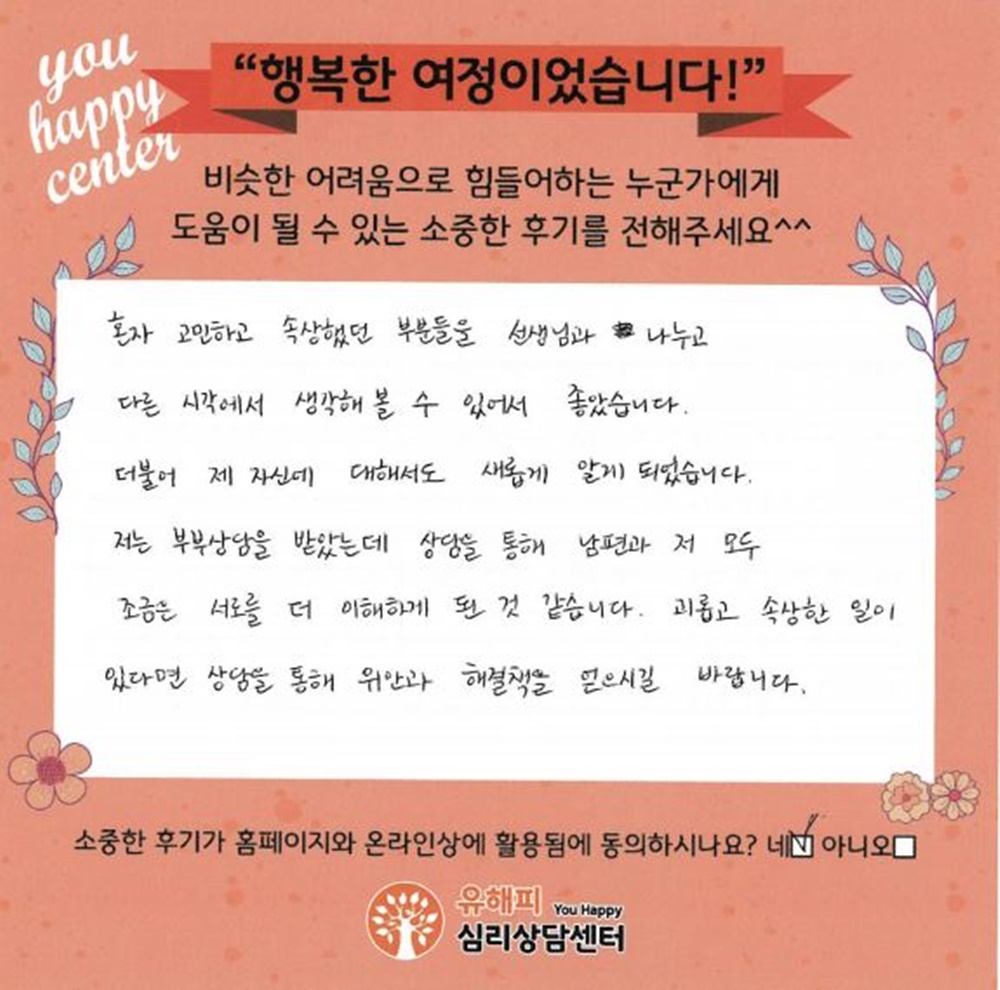 you
happy
center
“행복한 여정이었습니다!”
비슷한 어려움으로 힘들어하는 누군가에게
도움이 될 수 있는 소중한 후기를 전해주세요^^
혼자 고민하고 속상했던 부분들을 선생님과 나누고
다른 시각에서 생각해 볼 수 있어서 좋았습니다.
더불어 제 자신에 대해서도 새롭게 알게 되었습니다.
저는 부부상담을 받았는데 상담을 통해 남편과 저 모두
조금은 서로를 더 이해하게 된 것 같습니다. 괴롭고 속상한 일이
있다면 상담을 통해 위안과 해결책을 얻으시길 바랍니다.
소중한 후기가 홈페이지와 온라인상에 활용됨에 동의하시나요? 네 아니오
유해피 You Happy
심리상담센터